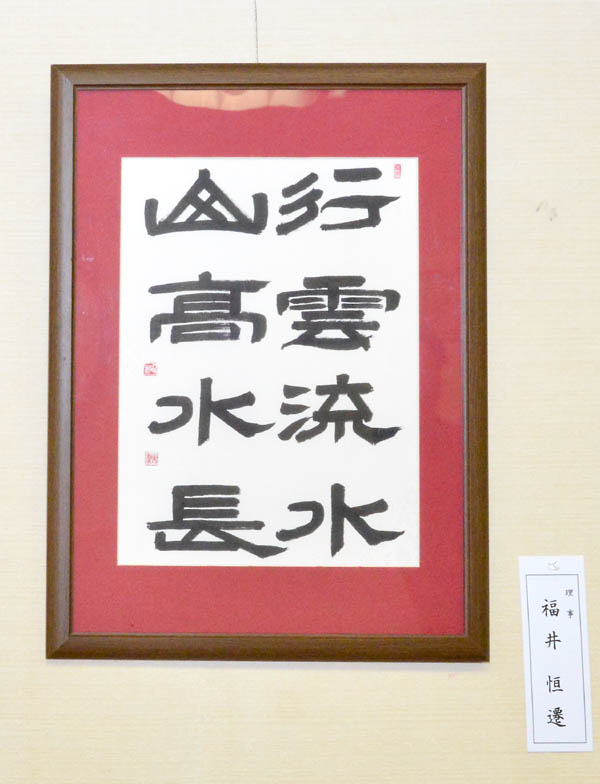 行雲流水
山高水長
理事
福井恒遷